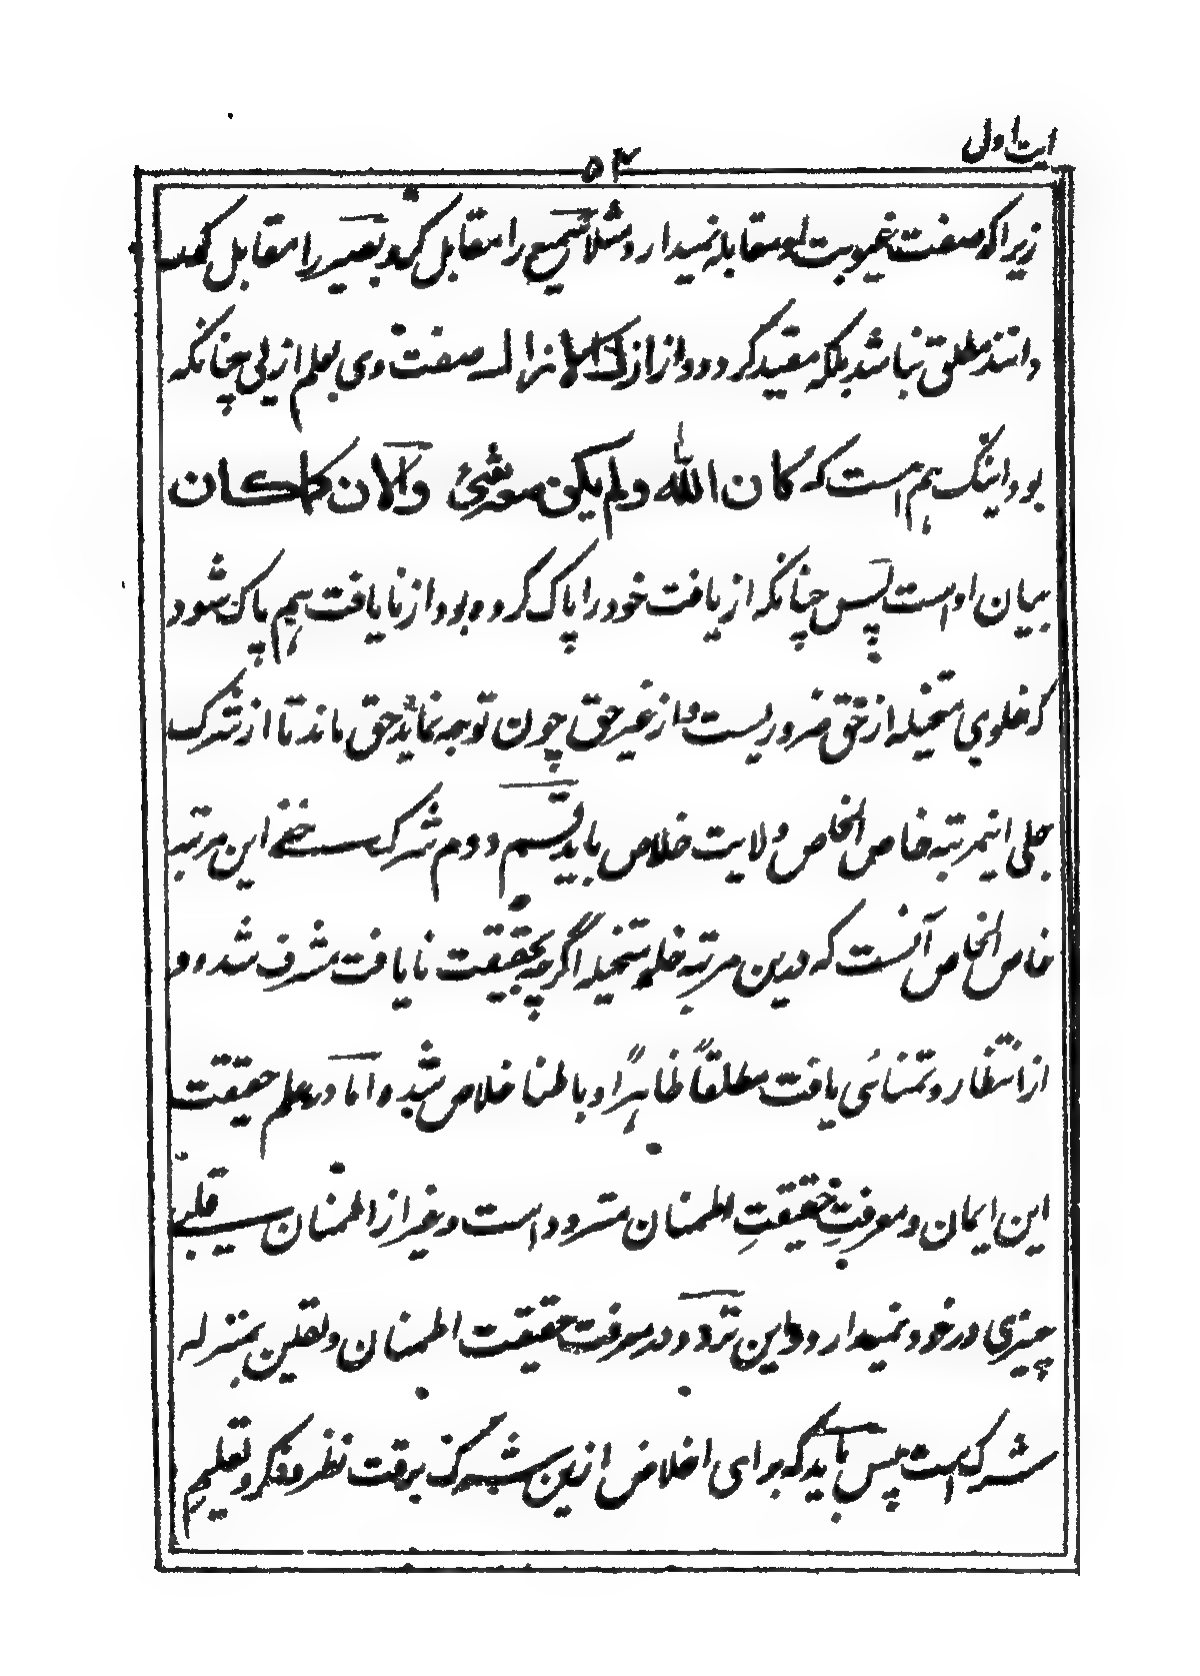 ایت اول
۵۴
زیرا که صفت غیریت او مقابله نمیدارد و مثلا سمیع را مقابل کر و بصیر را مقابل کور
دانند مطلق نباشد بلکه مقید گردد و از ازل الازال صفت وی بعلم ازلی چنانکه
بود اینک هم است که کان الله ولم یکن معه شیٔ والآن کما کان
بیان او است پس چنانکه از یافت خود را پاک کرده بود از نا یافت هم پاک شود
که خلوی متخیله از حق ضروریست و از غیر حق چون توجه نماید حق ماند تا از شرک
جلی اینمرتبه خاص الخاص ولایت خلاص یابد قسم دوم شرک خفی این مرتبه
خاص الخاص آنست که درین مرتبه خلو متخیله اگرچه بحقیقت نا یافت مشرف شده و
از انتظار و تمنائی یافت مطلقاً ظاهراً و باطنا خلاص شده و اما در علم حقیقت
این ایمان و معرفتِ حقیقتِ اطمنان متردد است و غیر از اطمنان قلبی
چیزی در خود نمیدارد و این تردد در معرفت حقیقت اطمنان و یقین بمنزله
شرک است پس باید که برای اخلاص ازین شرک برقت نظر و فکر و تعلیم